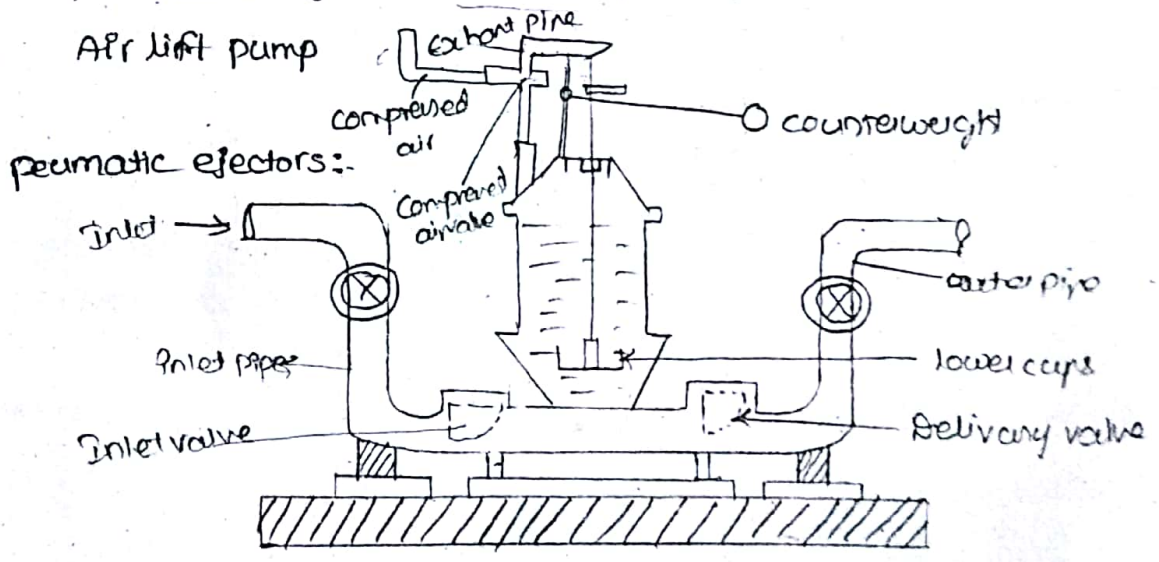 Air lift pump
Exhaust pipe
compressed
air
counterweight
peumatic ejectors:-
Compressed
airvalve
Inlet
outer pipe
Inlet pipes
lower cups
Inlet valve
Delivary valve